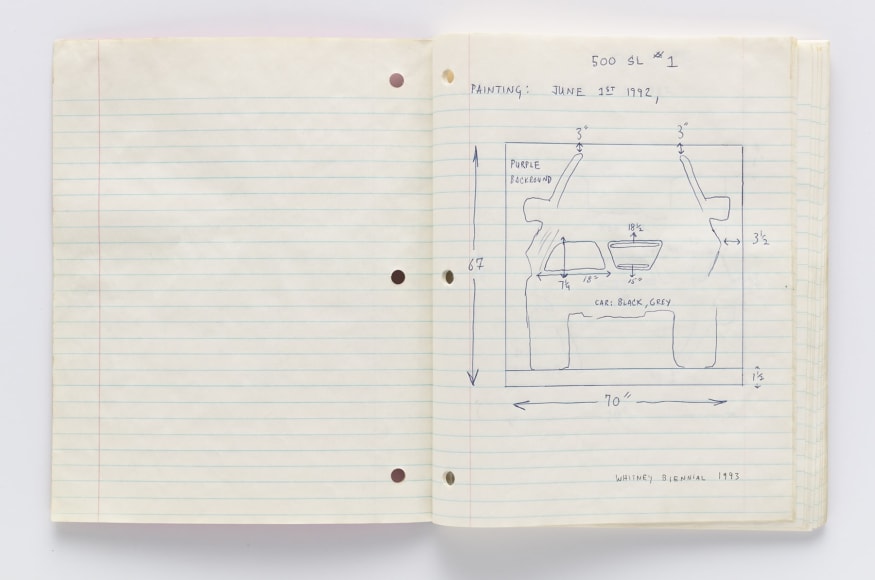 500 SL #1
PAINTING: JUNE 1ST 1992,
3" 3"
PURPLE
BACKROUND
18½
3½
67
7¼ 18" 15"
CAR: BLACK, GREY
1½
70"
WHITNEY BIENNIAL 1993